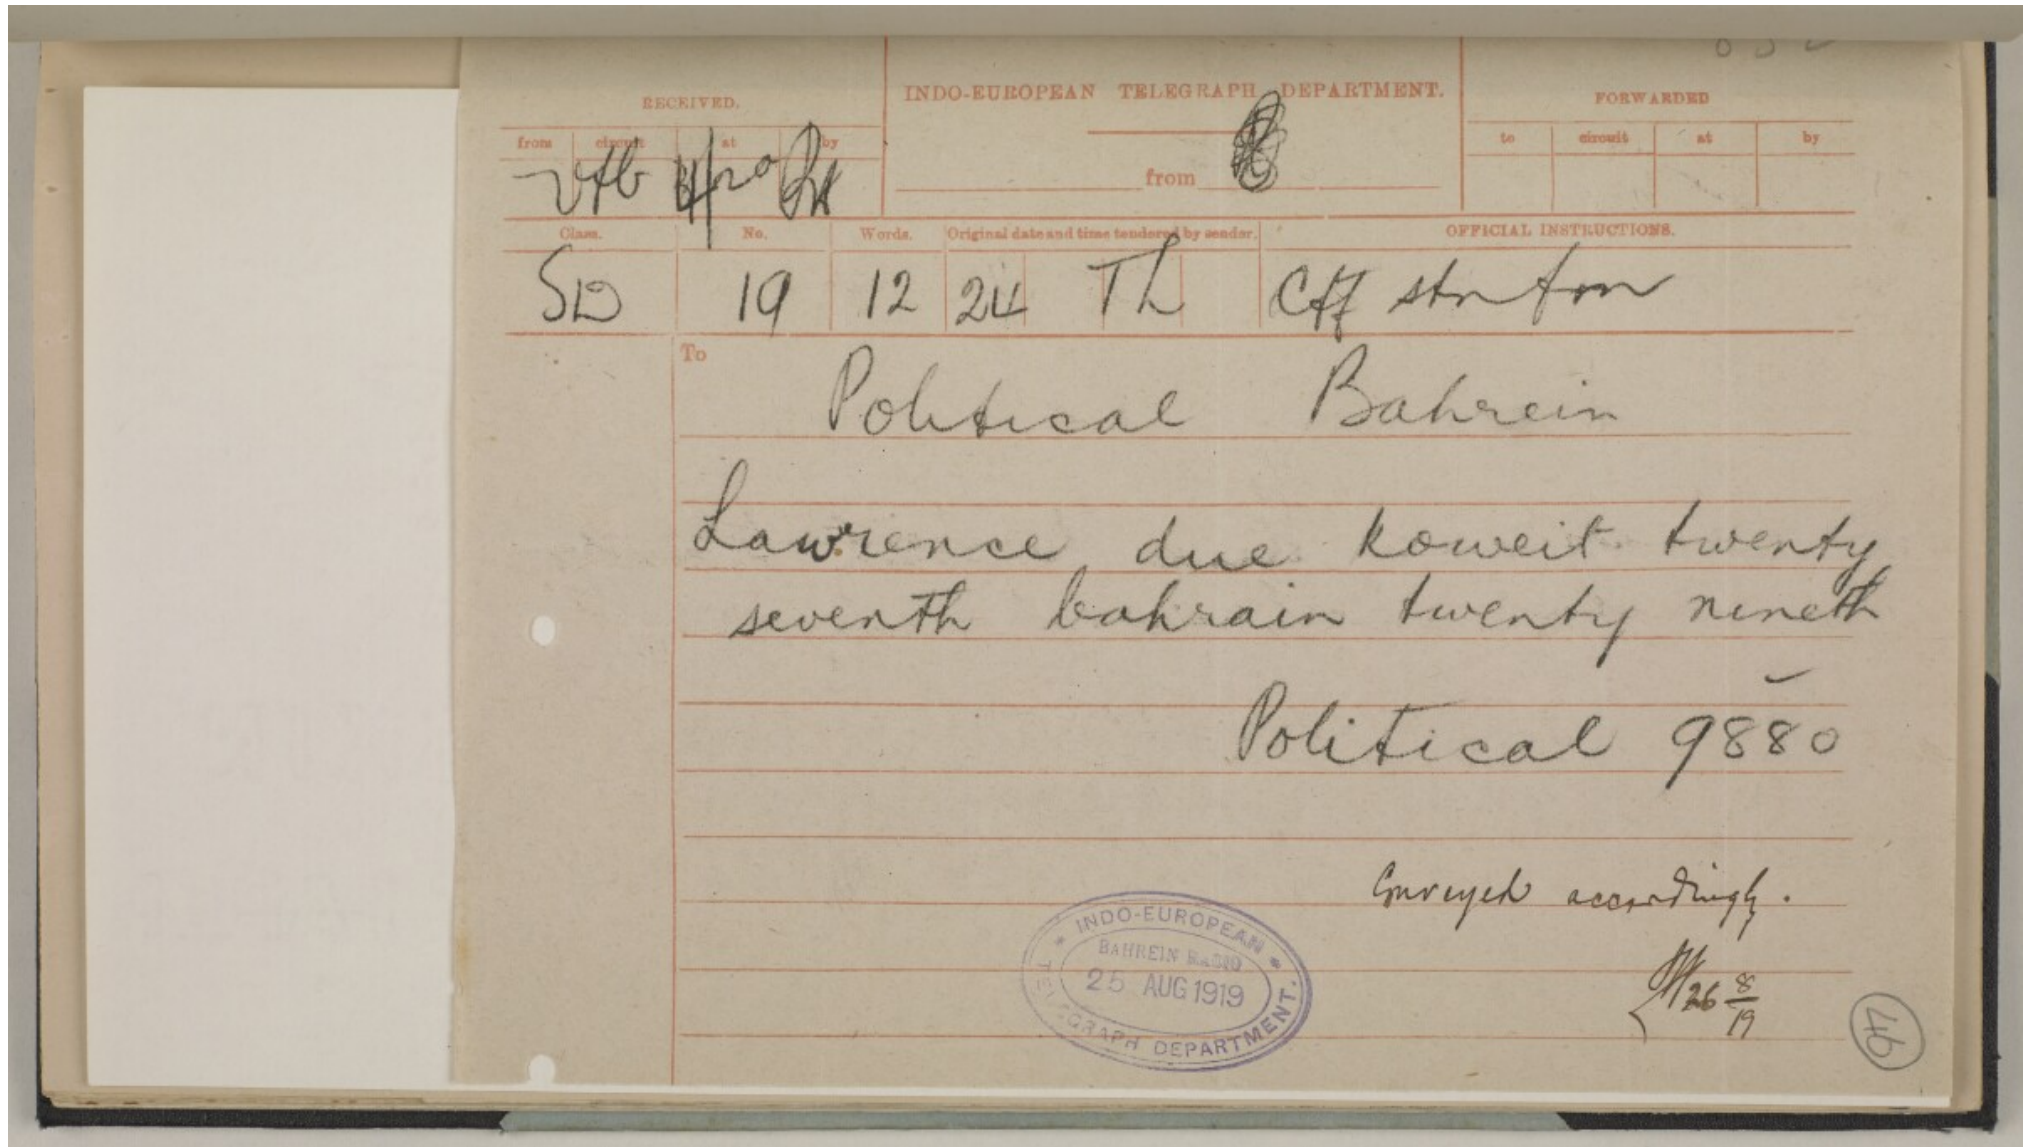 RECEIVED.
INDO-EUROPEAN TELEGRAPH DEPARTMENT.
FORWARDED
from circuit at by
to circuit at by
from
Class. No. Words. Original date and time tendered by sender. OFFICIAL INSTRUCTIONS.
19 12 24 Th
To
Political Bahrein
Lawrence due koweit twenty
seventh bahrain twenty nineth
Political 9880
Conveyed accordingly.
26 8/19
INDO-EUROPEAN
BAHREIN RADIO
25 AUG 1919
TELEGRAPH DEPARTMENT.
46